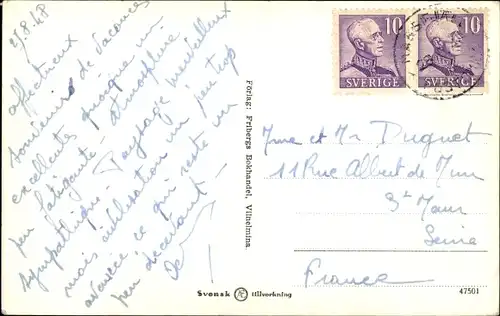 27.8.48
affectueux
souvenirs de vacances
excellentes quoique un
peu fatigante - atmosphère
sympathique - Paysage merveilleux
mais civilisation un peu trop
avancée ce qui reste un
peu décevant -
10 10
SVERIGE SVERIGE
Mme et Mr Duguet
11 Rue Albert de Mun
St Maur
Seine
France
Förlag: Fribergs Bokhandel, Vilhelmina.
Svensk tillverkning
47501